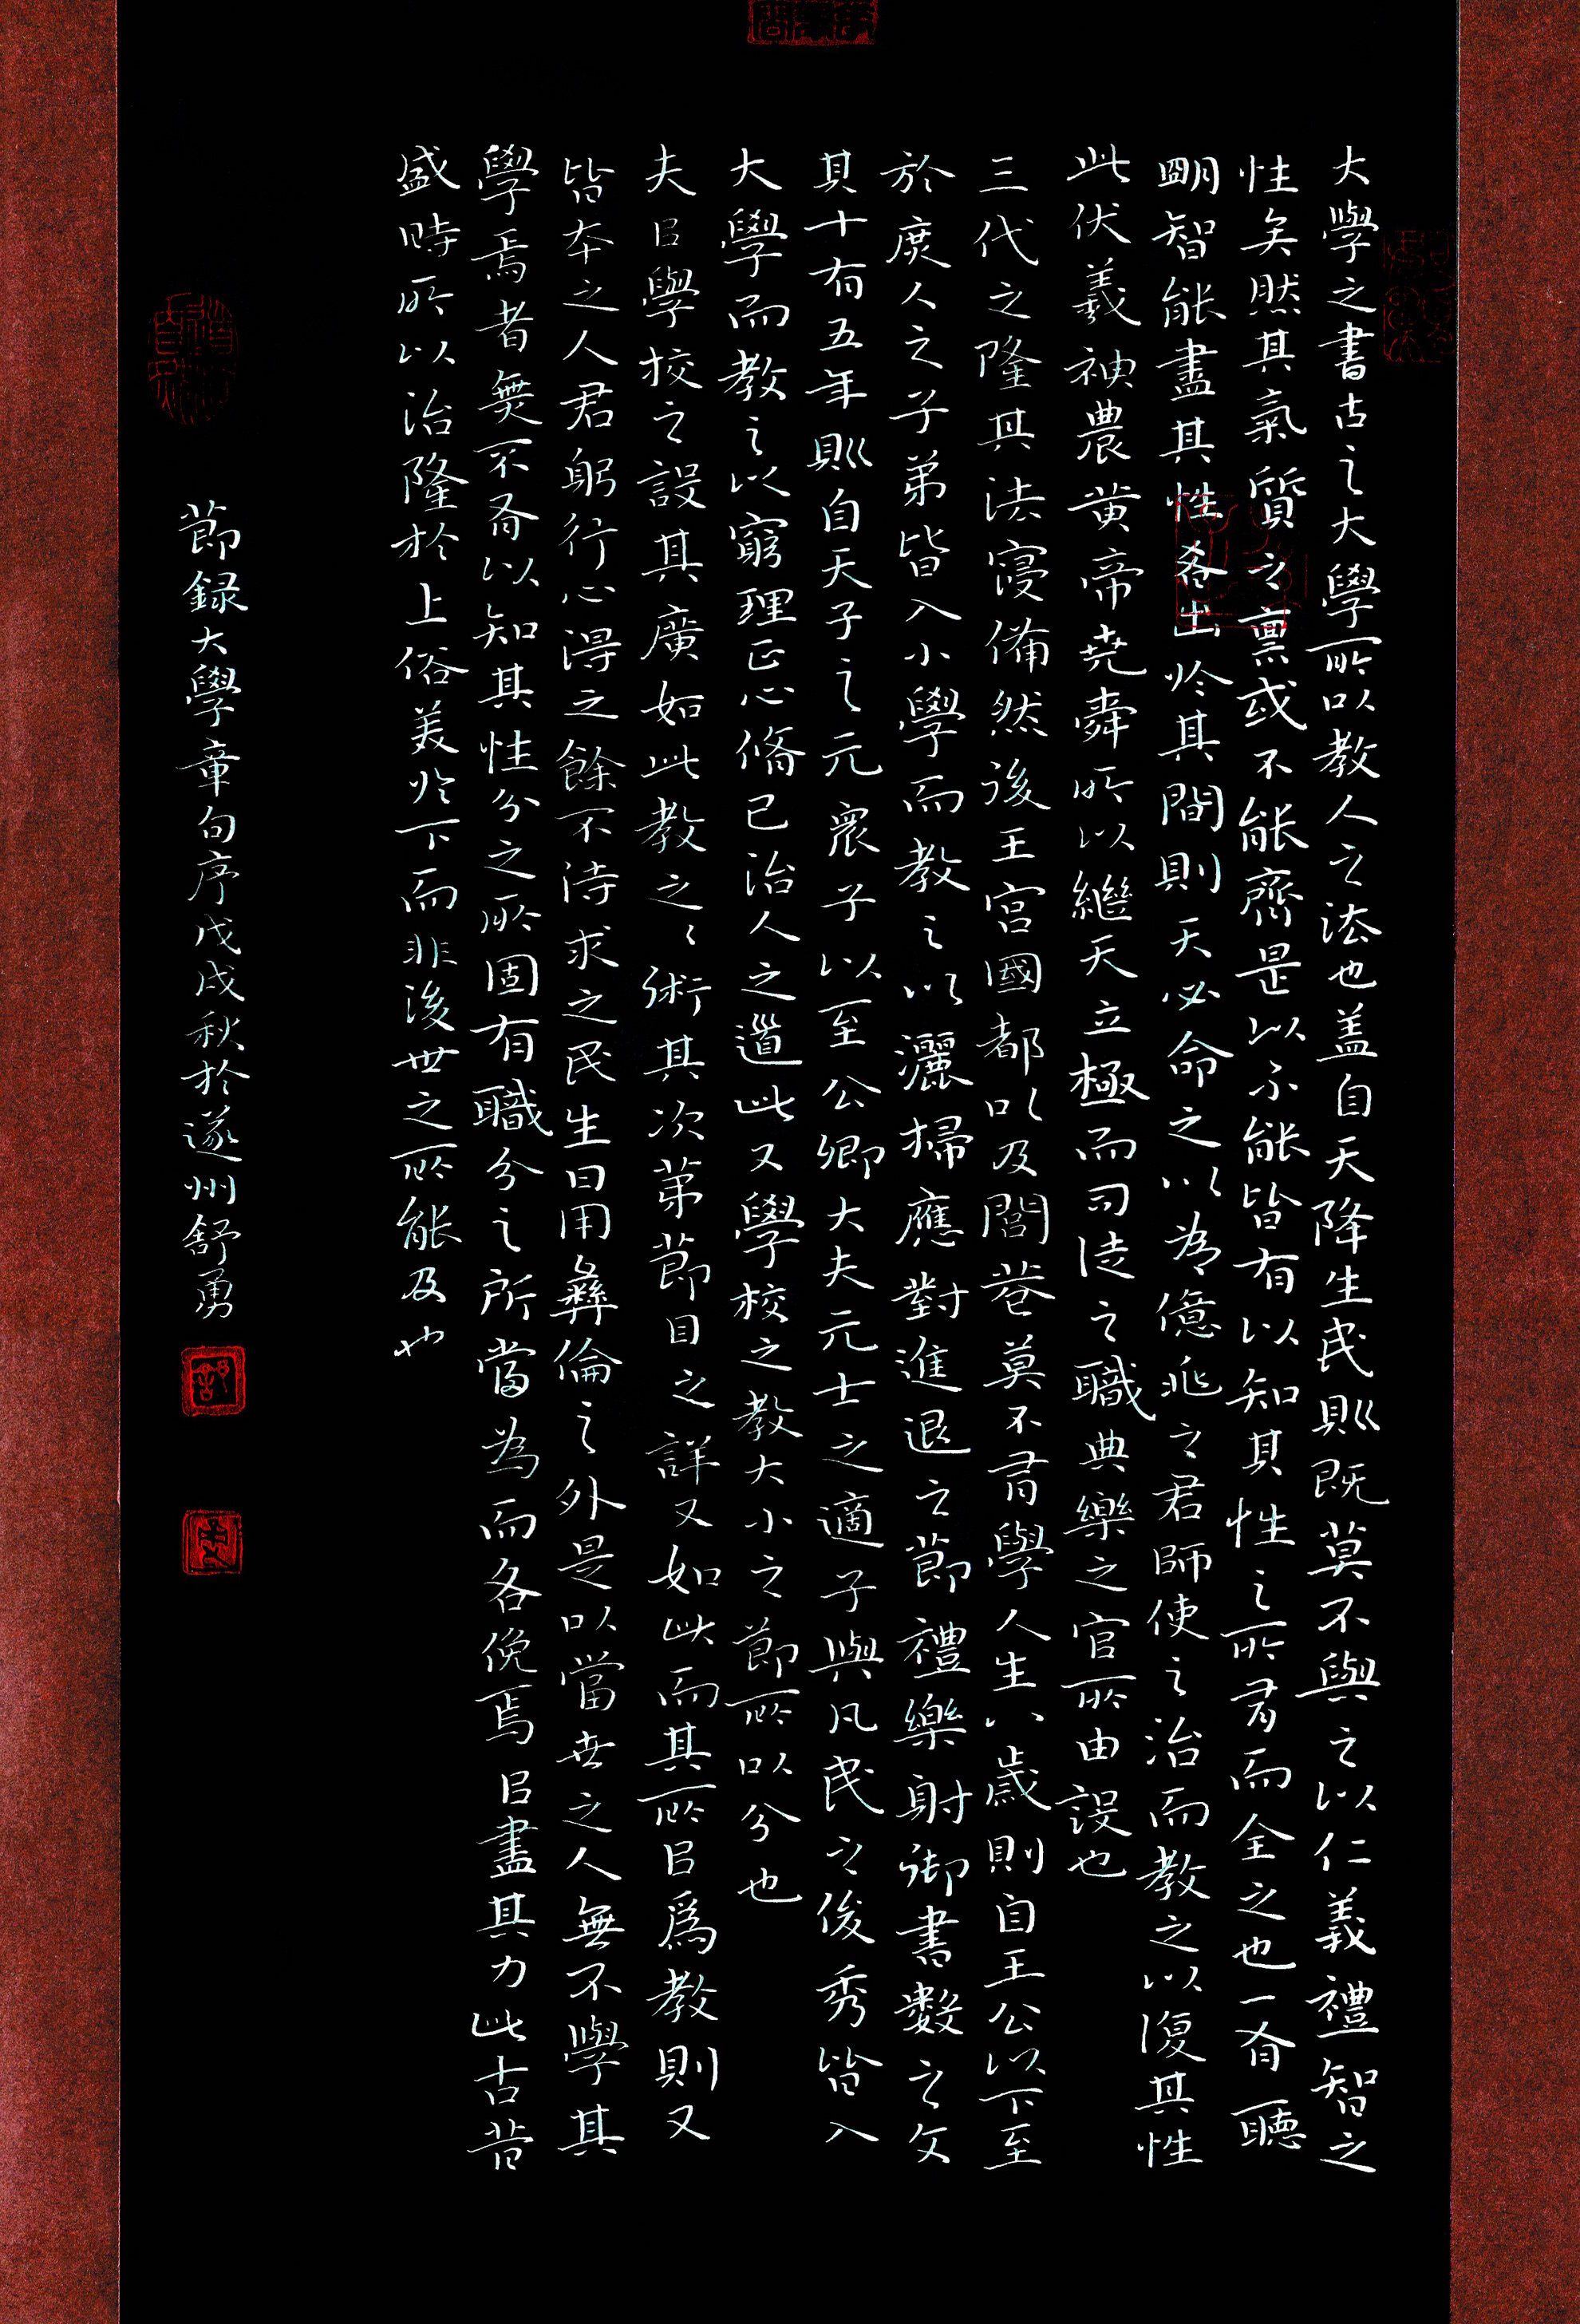 大學之書古之大學所以教人之法也盖自天降生民則既莫不與之以仁義禮智之
性矣然其氣質之禀或不能齊是以不能皆有以知其性之所有而全之也一有聰
明智能盡其性者出於其間則天必命之以為億兆之君師使之治而教之以復其性
此伏羲神農黄帝堯舜所以繼天立極而司徒之職典樂之官所由設也
三代之隆其法寖備然後王宫國都以及閭巷莫不有學人生八歲則自王公以下至
於庶人之子弟皆入小學而教之以灑掃應對進退之節禮樂射御書數之文
其十有五年則自天子之元衆子以至公卿大夫元士之適子與凡民之俊秀皆入
大學而教之以窮理正心脩己治人之道此又學校之教大小之節所以分也
夫㠯學校之設其廣如此教之之術其次第節目之詳又如此而其所㠯爲教則又
皆本之人君躬行心得之餘不待求之民生日用彝倫之外是以當世之人無不學其
學焉者無不有以知其性分之所固有職分之所當為而各俛焉㠯盡其力此古昔
盛時所以治隆於上俗美於下而非後世之所能及也
節録大學章句序戊戌秋於遂州舒勇